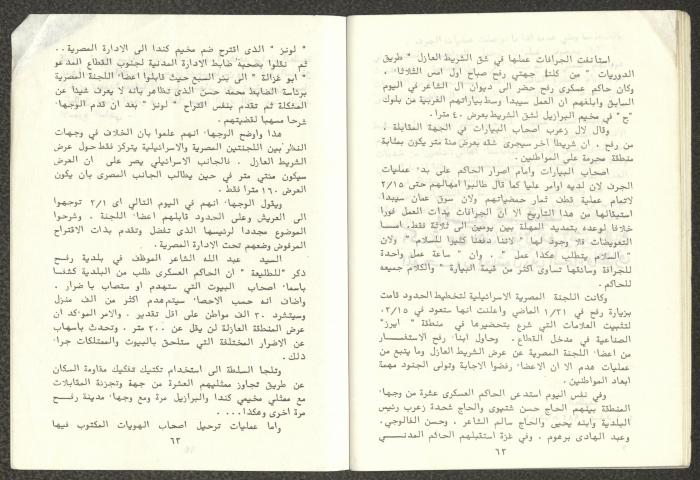 استأنفت الجرافات عملها في شق الشريط العازل " طريق
الدوريات " من كلتا جهتي رفح صباح اول امس الثلاثاء .
وكان حاكم عسكري رفح حضر الى ديوان ال الشاعر في اليوم
السابق وابلغهم ان العمل سيبدا وسط بياراتهم الغربية من بلوك
"ج" في مخيم البرازيل لشق الشريط بعرض ٤٠ مترا .
وقال لال زعرب اصحاب البيارات في الجهة المقابلة .
من رفح . ان شريطا اخر سيجرى شقه بعرض مئة متر يكون بمثابة
منطقة محرمة على المواطنين .
اصحاب البيارات وامام اصرار الحاكم على بدء عمليات
الجرف لان لديه اوامر عليا كما قال طالبوا امهالهم حتى ٢/١٥
لاتمام عملية قطف ثمار حمضياتهم ولان سوق عمان سيبدا
استقبالها من هذا التاريخ الا ان الجرافات بدأت العمل فورا
خلافا لوعده بتمديد المهلة بين يومين الى ثلاثة فقط، امسا
التعويضات فلا وجود لها " لاننا دفعنا كثيرا للسلام " ولان
" السلام يتطلب هكذا عمل " . وان " ساعة عمل واحدة
للجرافة وسائقها تساوى اكثر من قيمة البيارة " والكلام جميعه
للحاكم .
وكانت اللجنة المصرية الاسرائيلية لتخطيط الحدود قامت
بزيارة رفح في ١/٢١ الماضي واعلنت انها ستعود في ٢/١٥،
لتثبيت العلامات التي شرع بتحضيرها في منطقة " ايرز"
الصناعية في مدخل القطاع . وحاول ابناء رفح الاستفسار
من اعضاء اللجنة المصرية عن عرض الشريط العازل وما يتبع من
عمليات هدم الا ان الاعضاء رفضوا الاجابة وتولى الجنود مهمة
ابعاد المواطنين .
وفي نفس اليوم استدعى الحاكم العسكرى عشرة من وجهاء
المنطقة بينهم الحاج حسن شتيوى والحاج شحدة زعرب رئيس
البلدية وابنه يحيى والحاج سالم الشاعر . وحسن الغالوجي.
وعبد الهادى برهوم . وفي غزة استقبلهم الحاكم المدنـــي
٦٢
" لونز " الذى اقترح ضم مخيم كندا الى الادارة المصرية . .
ثم نقلوا بصحبة ضابط الادارة المدنية لجنوب القطاع المدعو
" ابو غزالة " الى بئر السبع حيث قابلوا اعضاء اللجنة المصرية
برئاسة الضابط محمد حسن الذى تظاهر بانه لا يعرف شيئا عن
المشكلة ثم تقدم بنفس اقتراح " لونز " بعد ان قدم الوجهاء
شرحا مسهبا لقضيتهم .
هذا واوضح الوجهاء انهم علموا بان الخلاف في وجهات
النظر بين اللجنتين المصرية والاسرائيلية يتركز فقط حول عرض
الشريط العازل . فالجانب الاسرائيلي يصر على ان العرض
سيكون مئتي متر في حين يطالب الجانب المصرى بان يكون
العرض ١٦٠ مترا فقط .
ويقول الوجهاء انهم في اليوم التالي اى ٢/١ توجهوا
الى العريش وعلى الحدود قابلهم اعضاء اللجنة . وشرحوا
الموضوع مجددا لرئيسها الذى تفضل وتقدم بذات الاقتراح
المرفوض وضعهم تحت الادارة المصرية .
السيد عبد الله الشاعر الموظف في بلدية رفـــح
ذكر "للطليعة " ان الحاكم العسكرى طلب من البلدية كشفا
باسماء اصحاب البيوت التي ستهدم او ستصاب باضرار .
واضاف انه حسب الاحصاء سيتم هدم اكثر من الف منزل
وسيتشرد ٣٠ الف مواطن على اقل تقدير . والامر الموكد ان
عرض المنطقة العازلة لن يقل عن ٢٠٠ متر . وتحدث باسهاب
عن الاضرار المختلفة التي ستلحق بالبيوت والممتلكات جراء
ذلك .
وتلجا السلطة الى استخدام تكتيك تفكيك مقاومة السكان
عن طريق تجاوز ممثليهم العشرة من جهة وتجزئة المقابلات
مع ممثلي مخيمي كندا والبرازيل مرة ومع وجهاء مدينة رفـــح
مرة اخرى وهكذا . . . .
واما عمليات ترحيل اصحاب الهويات المكتوب فيها
٦٣